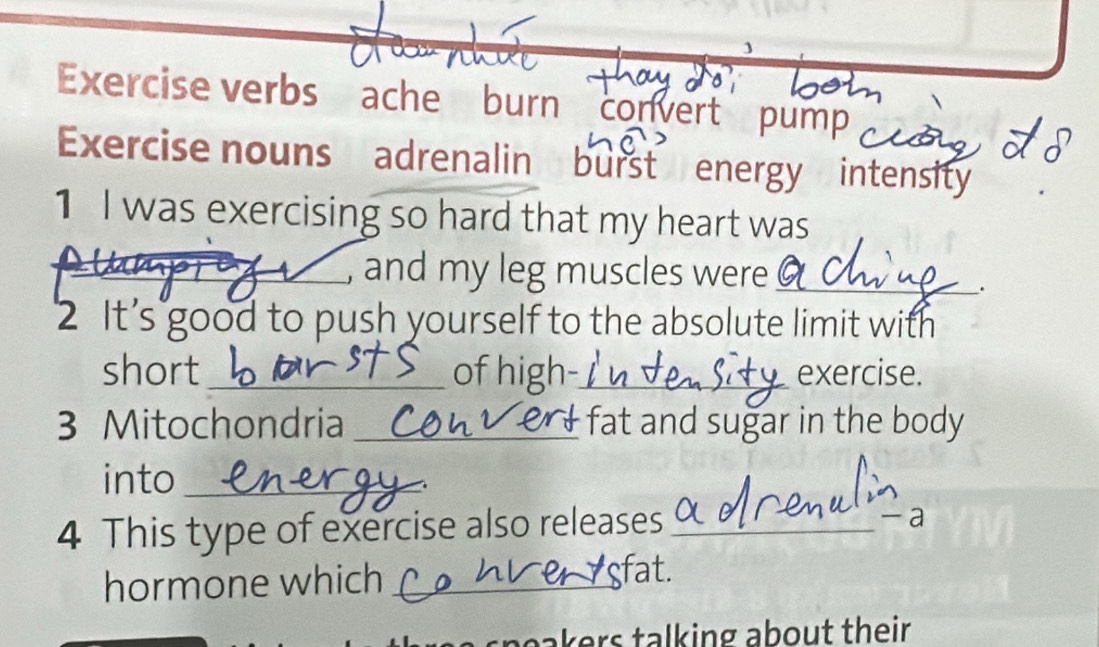 đau nhức thay đổi bơm
Exercise verbs ache burn convert pump
nổ cường độ
Exercise nouns adrenalin burst energy intensity
1 I was exercising so hard that my heart was
pumping, and my leg muscles were aching.
2 It's good to push yourself to the absolute limit with
short bursts of high-intensity exercise.
3 Mitochondria convert fat and sugar in the body
into energy.
4 This type of exercise also releases adrenalin – a
hormone which converts fat.
speakers talking about their